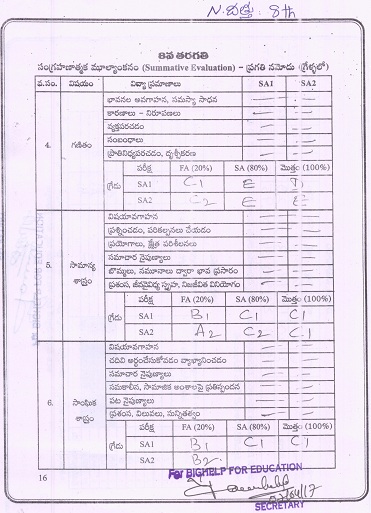 8th
8వ తరగతి
సంగ్రహణాత్మక మూల్యాంకనం (Summative Evaluation) - ప్రగతి నమోదు (గ్రేళ్ళలో)
వ.సం. విషయం విద్యా ప్రమాణాలు SA1 SA2
భావనల అవగాహన, సమస్యా సాధన
కారణాలు - నిరూపణలు
వ్యక్తపరచడం
సంబంధాలు
ప్రాతినిధ్యపరచడం, దృశ్యీకరణ
4. గణితం
పరీక్ష FA (20%) SA (80%) మొత్తం (100%)
గ్రేడు SA1 C1 E
SA2 C2 E E
విషయావగాహన
ప్రశ్నించడం, పరికల్పనలు చేయడం
ప్రయోగాలు, క్షేత్ర పరిశీలనలు
సమాచార నైపుణ్యాలు
బొమ్మలు, నమూనాల ద్వారా భావ ప్రసారం
ప్రశంస, జీవవైవిధ్య స్పృహ, నిజజీవిత వినియోగం
5. సామాన్య శాస్త్రం
పరీక్ష FA (20%) SA (80%) మొత్తం (100%)
గ్రేడు SA1 B1 C1 C1
SA2 A2 C2 C1
విషయావగాహన
చదివి అర్థంచేసుకోవడం వ్యాఖ్యానించడం
సమాచార నైపుణ్యాలు
సమకాలీన, సామాజిక అంశాలపై ప్రతిస్పందన
పట నైపుణ్యాలు
ప్రశంస, విలువలు, సున్నితత్వం
6. సాంఘిక శాస్త్రం
పరీక్ష FA (20%) SA (80%) మొత్తం (100%)
గ్రేడు SA1 B1 C1 C1
SA2 B2
16
For BIGHELP FOR EDUCATION
SECRETARY